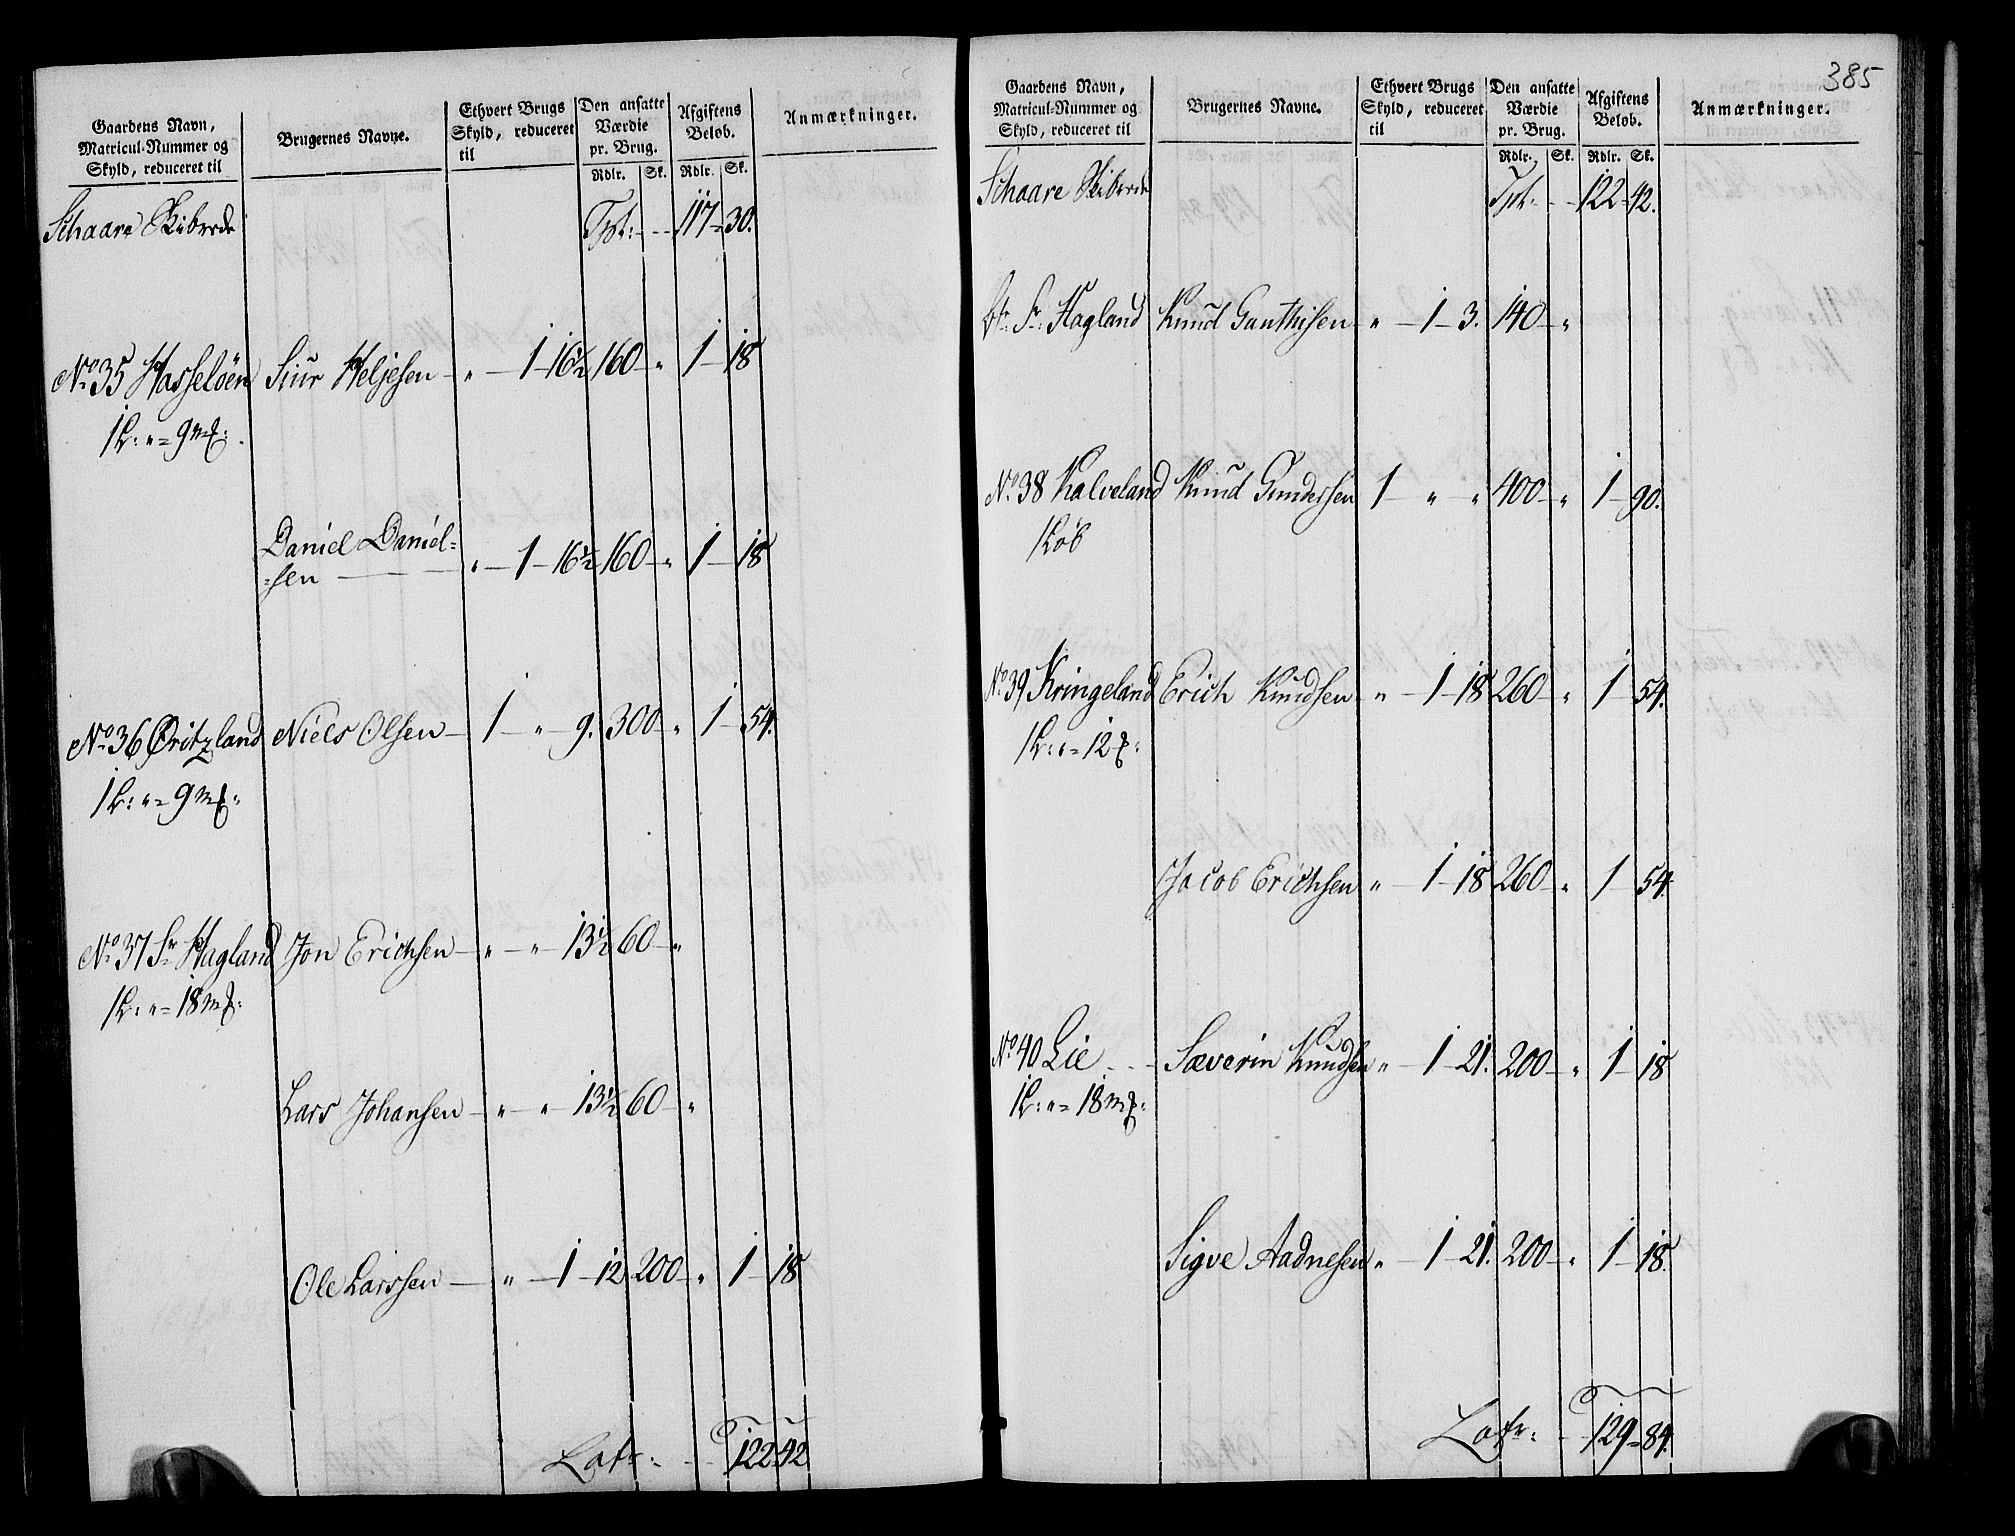 Gaardens Navn,
Matricul-Nummer og
Skyld, reduceret til
Brugernes Navne.
Ethvert Brugs
Skyld, reduceret
til
Den ansatte
Værdie
pr. Brug.
Rdlr. Sk.
Afgiftens
Beløb.
Rdlr. Sk.
Anmærkninger.
Schaare Skibrede Tpt: - - 117 = 30.
No 35 Hasseløen Siur Heljesen - " - 1 - 16½ 160 - " 1 - 18
1 L: " = 9 m
Daniel Daniel=
=sen " - 1 - 16½ 160 - " 1 - 18
No 36 Øritzland Niels Olsen - 1 - " - 9. 300 - " 1 - 54.
1 L: " = 9 m
No 37 Sr Hagland Jon Erichsen - " - " - 13½ 60 - "
1 L: " = 18 m
Lars Johansen - " - " 13½ 60 - "
Ole Larssen - " - 1 - 12 200 - " 1 - 18
Latr: - - 122 = 42
385
Gaardens Navn,
Matricul-Nummer og
Skyld, reduceret til
Brugernes Navne.
Ethvert Brugs
Skyld, reduceret
til
Den ansatte
Værdie
pr. Brug.
Rdlr. Sk.
Afgiftens
Beløb.
Rdlr. Sk.
Anmærkninger.
Schaare Skibrede Tpt: - - 122 = 42.
Sr: Hagland Knud Gauthisen - " - 1 - 3. 140 - "
No 38 Kalveland Knud Gundersen 1 - " " 400 - " 1 - 90.
1 Løb
No 39 Kringeland Erich Knudsen - " - 1 - 18 260 - " 1 - 54.
1 L: " = 12
Jacob Erichsen " - 1 - 18 260 - " 1 - 54.
No 40 Lie - - - Sæverin Knudsen " - 1 - 21. 200 - " 1 - 18
1 L: " = 18 m
Sigve Aadnesen " - 1 - 21. 200 - " 1 - 18.
Latr: - - 129 = 84.